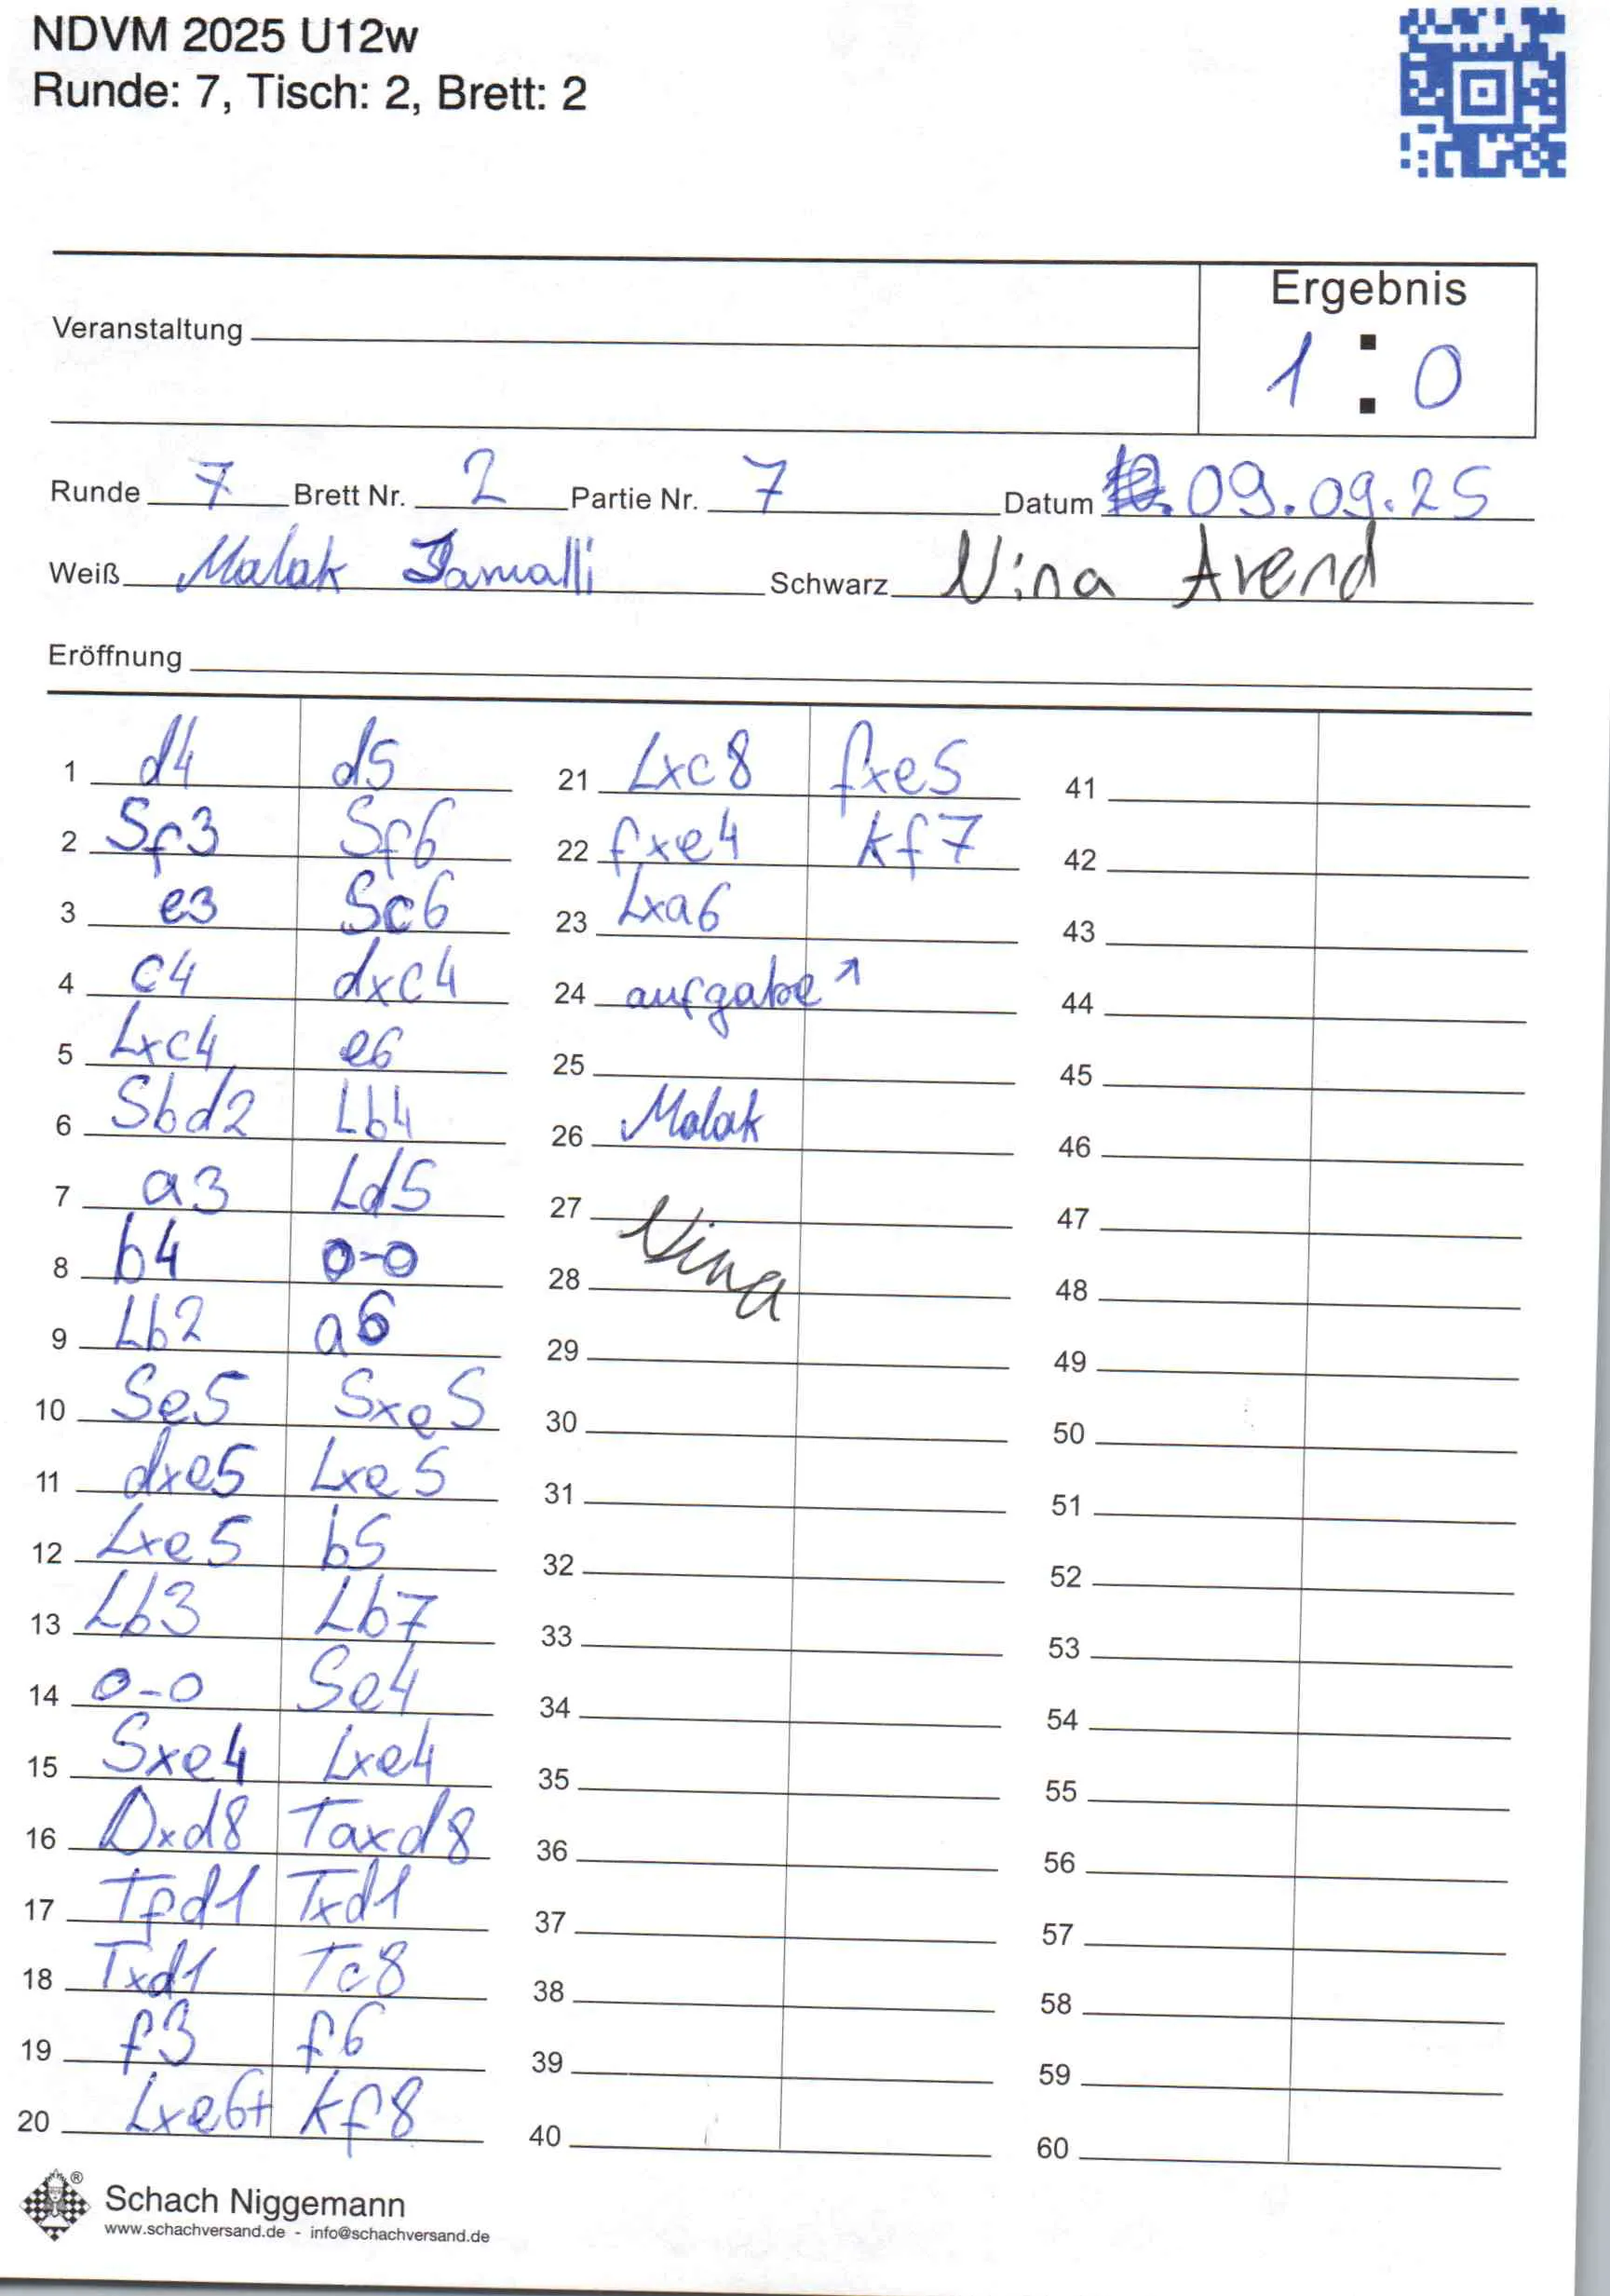 NDVM 2025 U12w
Runde: 7, Tisch: 2, Brett: 2
Ergebnis
Veranstaltung
1 : 0
Runde 7 Brett Nr. 2 Partie Nr. 7 Datum 09.09.25
Weiß Malak Jamalli Schwarz Nina Arend
Eröffnung
1 d4 d5
2 Sf3 Sf6
3 e3 Sc6
4 c4 dxc4
5 Lxc4 e6
6 Sbd2 Lb4
7 a3 Ld5
8 b4 0-0
9 Lb2 a6
10 Se5 Sxe5
11 dxe5 Lxe5
12 Lxe5 b5
13 Lb3 Lb7
14 0-0 Se4
15 Sxe4 Lxe4
16 Dxd8 Taxd8
17 Tfd1 Txd1
18 Txd1 Tc8
19 f3 f6
20 Lxe6+ Kf8
21 Lxc8 fxe5
22 fxe4 Kf7
23 Lxa6
24 aufgabe ↗
25
26 Malak
27 Nina
28
29
30
31
32
33
34
35
36
37
38
39
40
41
42
43
44
45
46
47
48
49
50
51
52
53
54
55
56
57
58
59
60
®
Schach Niggemann
www.schachversand.de - info@schachversand.de